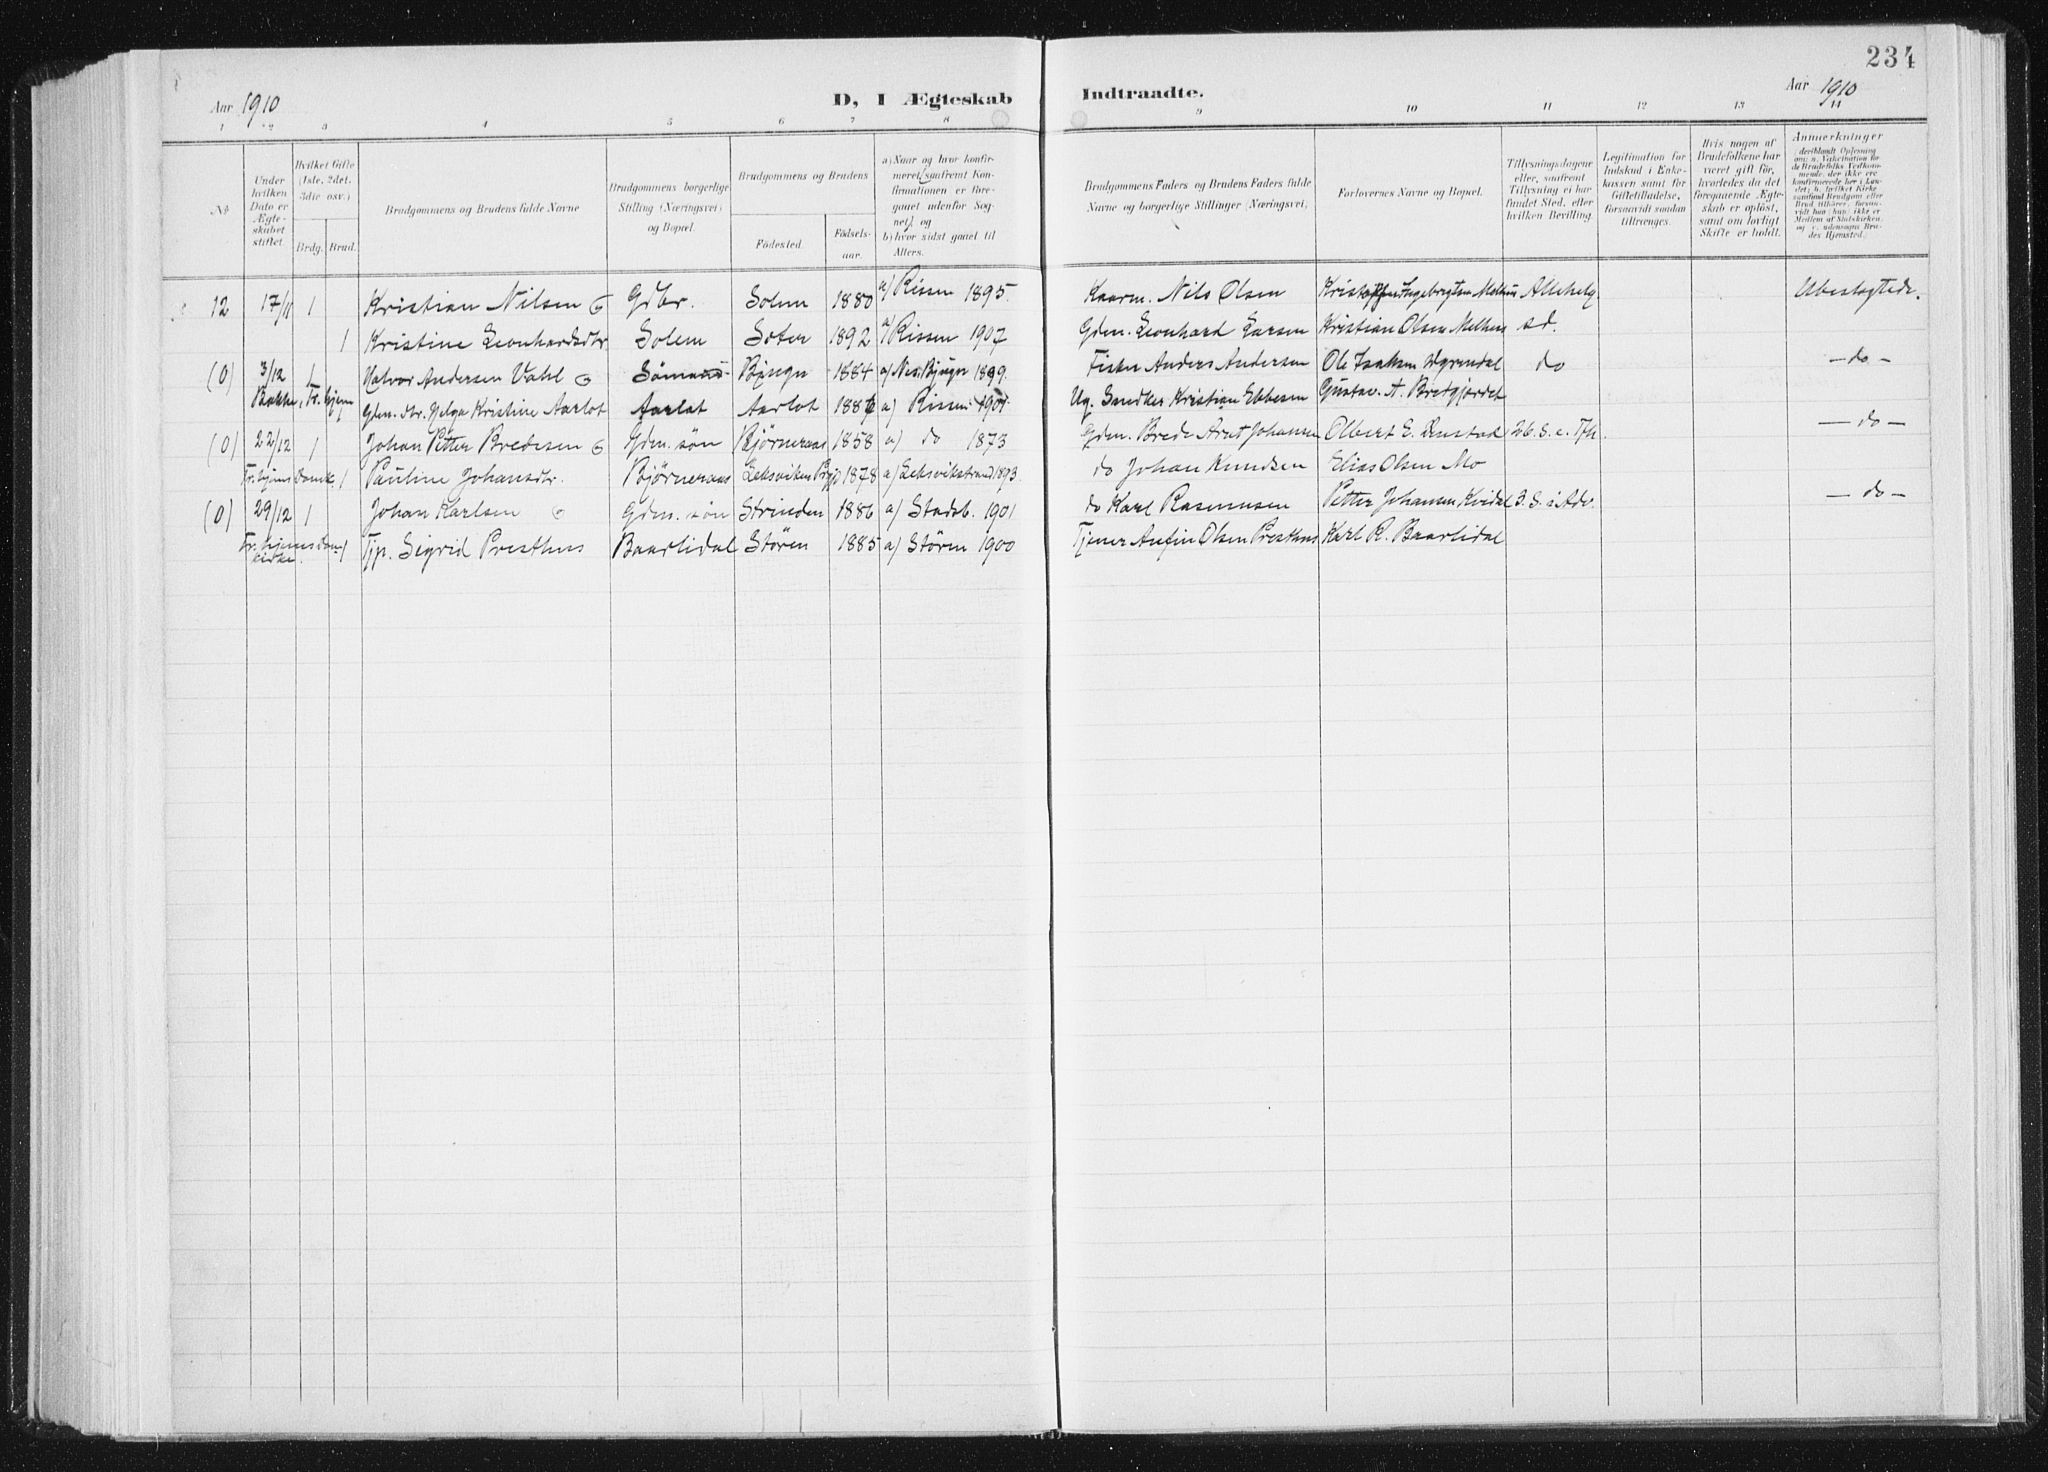 234
Aar 1910
D, I Ægteskab Indtraadte.
Aar 1910
1 2 3 4 5 6 7 8 9 10 11 12 13 14
№
Under hvilken Dato er Ægteskabet stiftet.
Hvilket Gifte (1ste, 2det, 3die osv.)
Brdg. Brud.
Brudgommens og Brudens fulde Navne
Brudgommens borgerlige Stilling (Næringsvei) og Bopæl.
Brudgommens og Brudens
Fødested. Fødselsaar.
a) Naar og hvor konfirmeret (saafremt Konfirmationen er foregaaet udenfor Sognet), og
b) hvor sidst gaaet til Alters.
Brudgommens Faders og Brudens Faders fulde Navne og borgerlige Stillinger (Næringsvei).
Forlovernes Navne og Bopæl.
Tillysningsdagene eller, saafremt Tillysning ei har fundet Sted, efter hvilken Bevilling.
Legitimation for Indskud i Enkekassen samt for Giftetilladelse, forsaavidt saadan tiltrænges.
Hvis nogen af Brudefolkene har været gift før, hvorledes da det foregaaende Ægteskab er opløst, samt om lovligt Skifte er holdt.
Anmerkninger
12 17/11 1 Kristian Nilsen Gdbr. Solem 1880 a) Rissen 1895. Kaarm. Nils Olsen Kristoffer Ingebrigtsen Melhus Allehelg. Ubeslægtede.
1 Kristine Leonhardsdtr. Solem Soter 1892 a) Rissen 1907 Gdm. Leonhard Larsen Kristian Olsen Melhus sd.
(0) 3/12 1 Halvor Andersen Vahl Sömand Bjugn 1884 a) Nes, Bjugn 1899. Fisker Anders Andersen Ole Isaksen do -do-
Bakke, Tr.hjem 1 Gdm. dtr. Helga Kristine Aarlot Aarlot Aarlot 1887 a) Rissen 1901. Ug. Snedker Kristian Ebbesen Gustav A. Bredgjordet
(0) 22/12 1 Johan Petter Bredesen Gdm. søn Bjørneraas 1858 a) do 1873 Gdm. Brede Arnt Johansen Olbert E. 26. S. e. Tfh. -do-
Tr.hjems Domk. 1 Pauline Johansdtr. Bjørneraas Leksviken Prgd 1878 a) Leksvikstrand 1893. do Johan Knudsen Elias Olsen Mo
(0) 29/12 1 Johan Karlsen Gdm. søn Strinden 1886 a) Stadsb. 1901 do Karl Rasmussen Petter Johansen Kvidal 3. S. i Adv. -do-
Tr.hjems Domkirke. 1 Tjp. Sigrid Presthus Baarlidal Støren 1885 a) Støren 1900 Tjener Anfin Olsen Presthus Karl R. Baarlidal